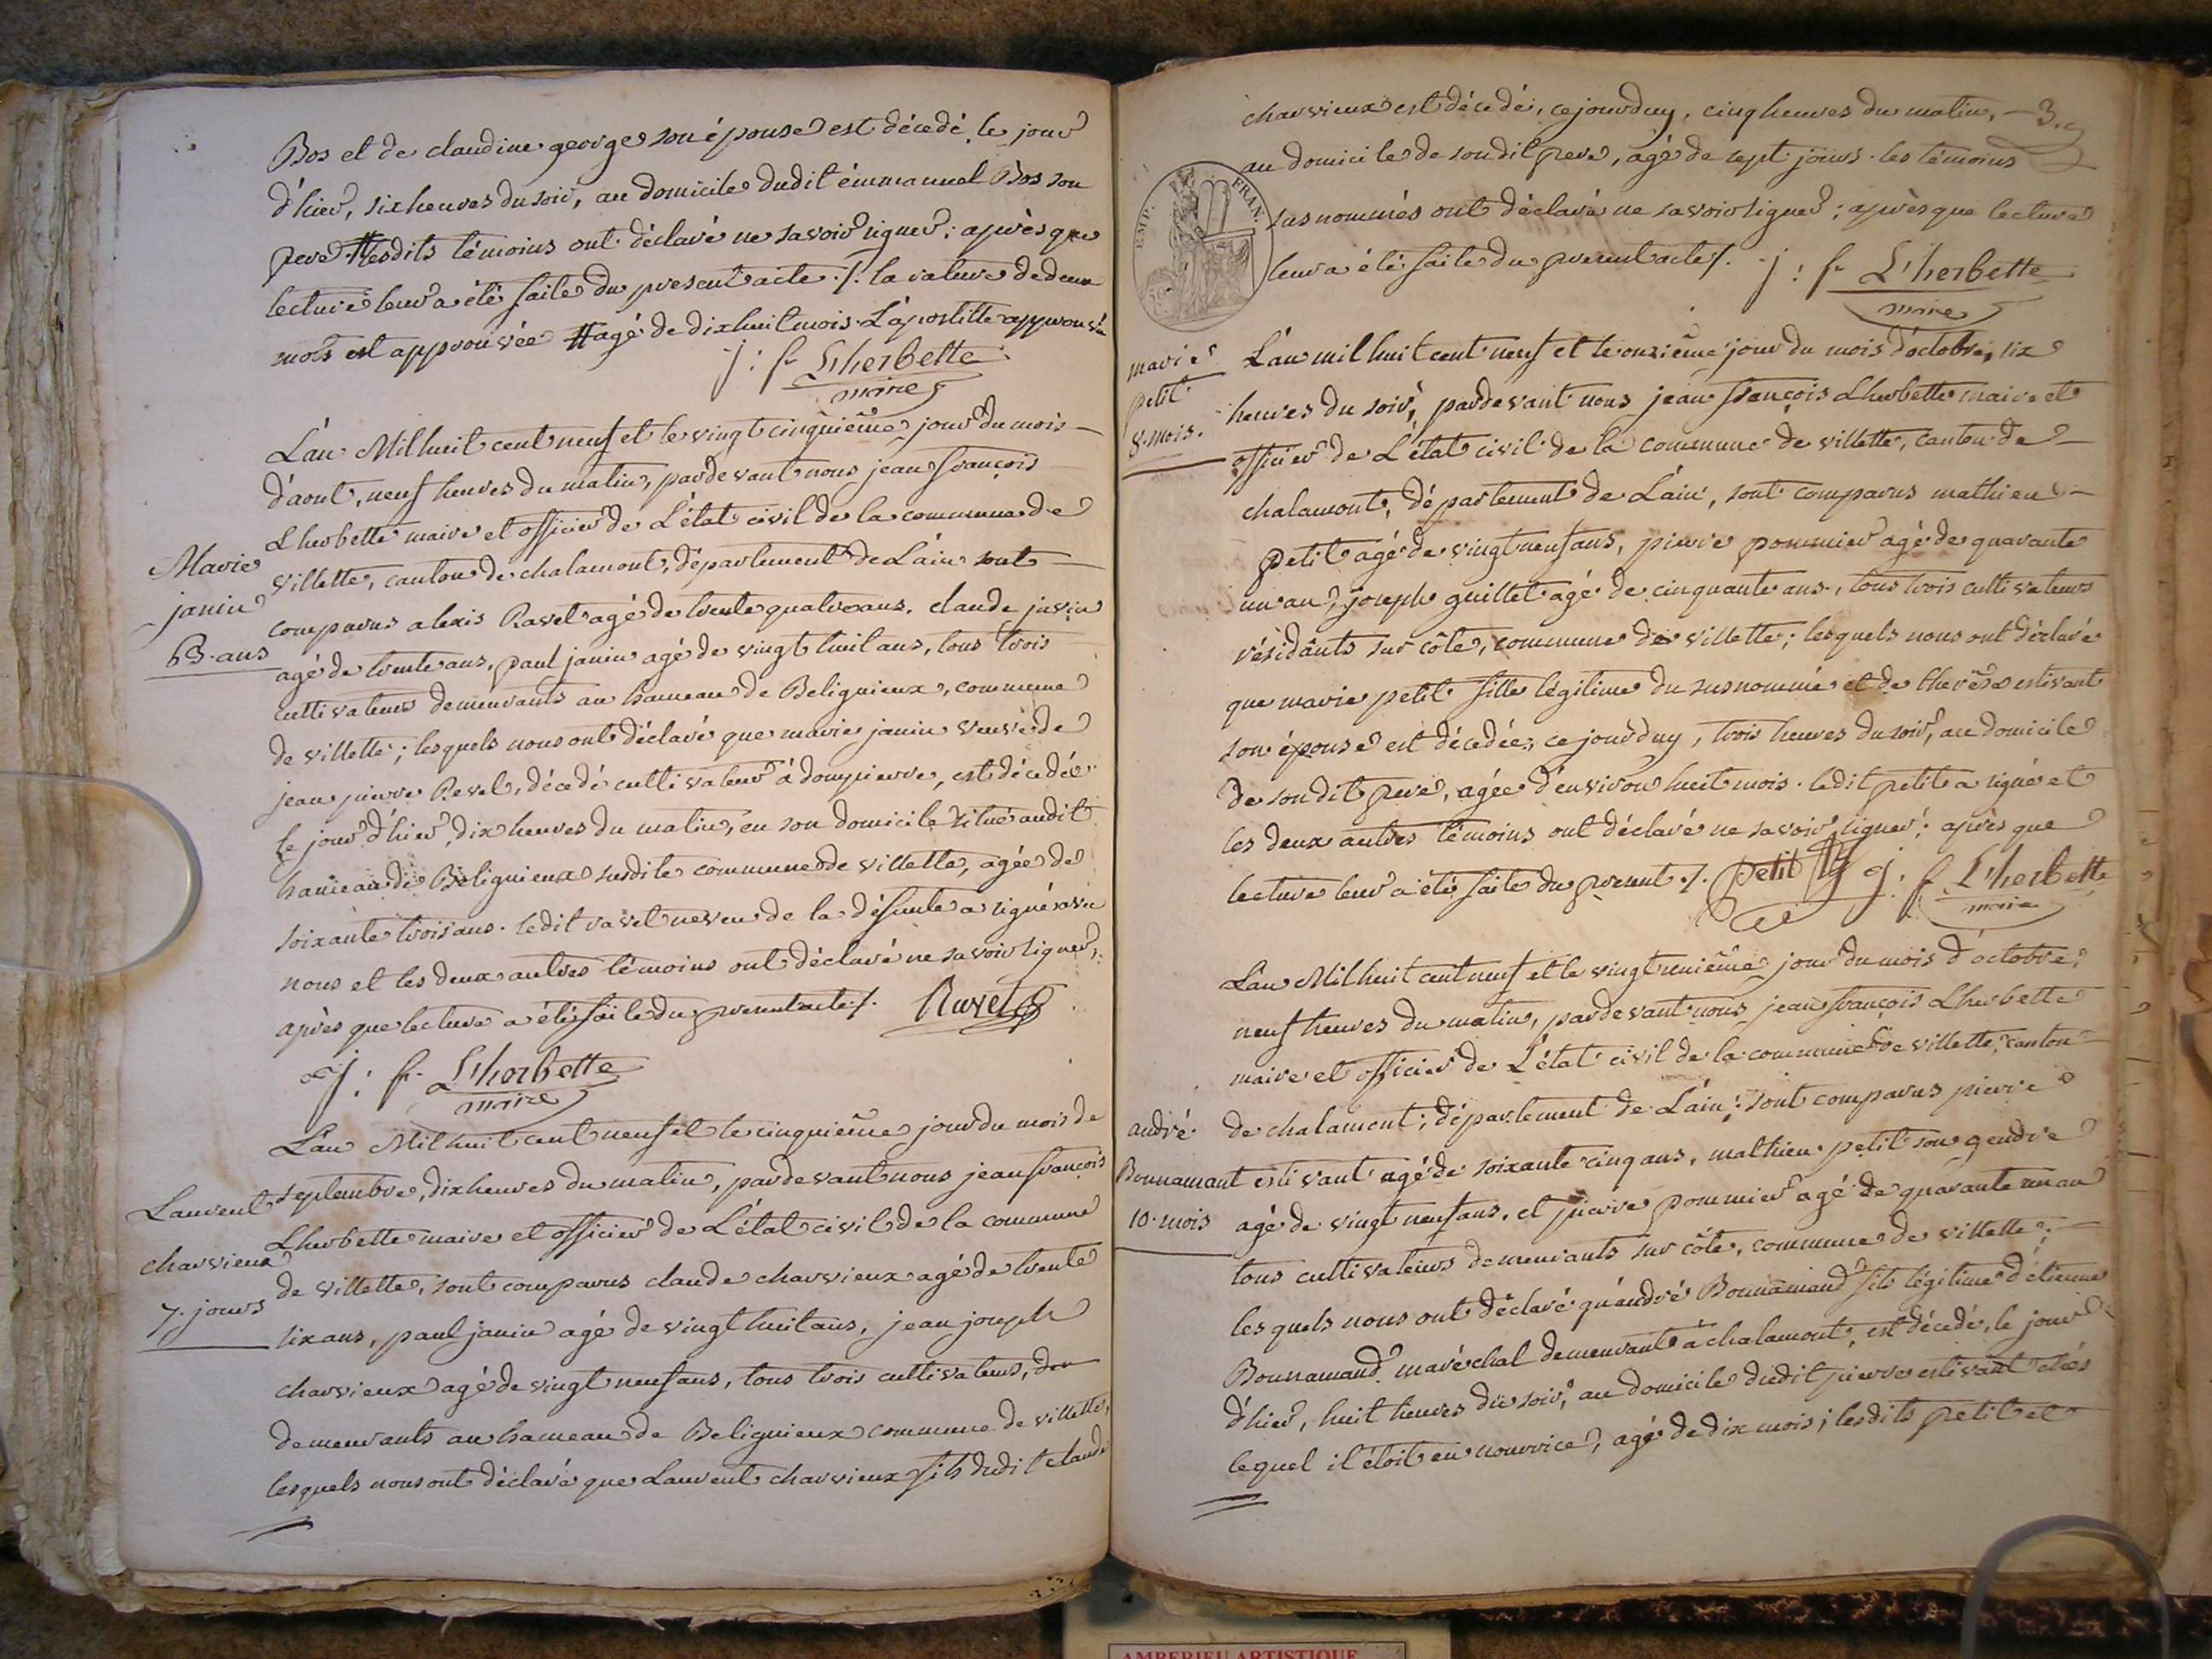 Bos et de claudine george son épouse est décedé, le jour
d'hier, six heures du soir, au domicile dudit émmanuel Bos son
pere # lesdits témoins ont déclaré ne savoir signer; après que
lecture leur a été faite du present acte ./. la rature de deux
mots est approuvée # agé de dix huit mois. L'apostille approuvée
j: f. Lherbette
maire
L'an Mil huit cent neuf et le vingt cinquième jour du mois
d'aout, neuf heures du matin, pardevant nous jean françois
Lherbette maire et officier de L'état civil de la commune de
Marie
janin
63. ans
villette, canton de chalamont, département de L'ain sont
comparus alexis Ravet agé de trente quatre ans, claude janin
agé de trente ans, paul janin agé de vingt huit ans, tous trois
cultivateurs demeurants au hameau de Beliguieux, commune
de villette; lesquels nous ont déclaré que marie janin veuve de
jean pierre Revel, décedé cultivateur à dompierre, est décedée
le jour d'hier, dix heures du matin, en son domicile situé audit
hameau de Beliguieux susdite commune de villette, agée de
soixante trois ans. ledit ravet neveu de la défunte a signé avec
nous et les deux autres témoins ont déclaré ne savoir signer,
après que lecture a été faite du present acte ./. Ravet
j: f. Lherbette
maire
L'an Mil huit cent neuf et le cinquième jour du mois de
Laurent
charvieux
7. jours
septembre, dix heures du matin, pardevant nous jean françois
Lherbette maire et officier de L'état civil de la commune
de villette, sont comparus claude charvieux agé de trente
six ans, paul janin agé de vingt huit ans, jean joseph
charvieux agé de vingt neuf ans, tous trois cultivateurs, de
demeurants au hameau de Beliguieux commune de villette,
lesquels nous ont déclaré que Laurent charvieux fils dudit claude
charvieux est décedé, ce jourduy, cinq heures du matin, 3.
au domicile de son dit pere, agé de sept jours. les témoins
susnommés ont déclaré ne savoir signer; après que lecture
leur a été faite du present acte ./. j: f. Lherbette
maire
EMP. FRAN.
marie
petit
8. mois.
L'an mil huit cent neuf et le onzième jour du mois d'octobre, six
heures du soir, pardevant nous jean françois Lherbette maire et
officier de L'état civil de la commune de villette, canton de
chalamont, département de L'ain, sont comparus mathieu
petit agé de vingt neuf ans, pierre pommier agé de quarante
un an, joseph guillet agé de cinquante ans, tous trois cultivateurs
résidants sur côte, commune de villette; lesquels nous ont déclaré
que marie petit fille légitime du susnommé et de therèse estivant
son épouse est décedée, ce jourduy, trois heures du soir, au domicile
de son dit pere, agée d'environ huit mois. ledit petit a signé et
les deux autres témoins ont déclaré ne savoir signer; après que
lecture leur a été faite du present ./. petit j: f. Lherbette
maire
L'an Mil huit cent neuf et le vingt unième jour du mois d'octobre,
neuf heures du matin, pardevant nous jean françois Lherbette
maire et officier de L'état civil de la commune de villette, canton
andré
Bonnamant
10. mois
de chalamont, département de L'ain; sont comparus pierre
estivant agé de soixante cinq ans, mathieu petit son gendre
agé de vingt neuf ans, et pierre pommier agé de quarante un an
tous cultivateurs demeurants sur côte, commune de villette;
lesquels nous ont déclaré qu'andré Bonnamand fils légitime d'étienne
Bonnamand, maréchal demeurant à chalamont, est décedé, le jour
d'hier, huit heures du soir, au domicile dudit pierre estivant chés
lequel il étoit en nourrice, agé de dix mois; lesdits petit et
AMBERIEU ARTISTIQUE